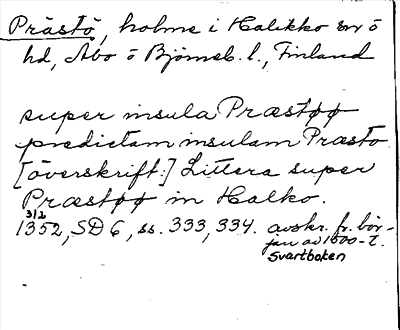 Prästö, holme i Halikko sn ö
hd, Åbo o Björneb. l., Finland
super insula Præstøø
predictam insulam Præstø
[överskrift:] Littera super
Præstøø in Halko.
31/2
1352, SD 6, ss. 333, 334. avskr. fr. bör-
jan av 1500-t.
Svartboken